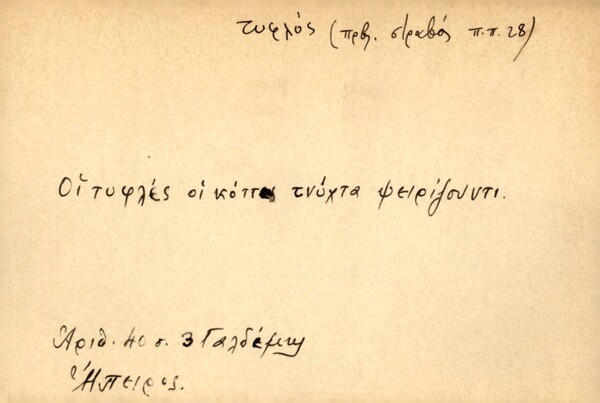 τυφλός (πρβ. στραβός π.π. 28)
Οἱ τυφλές οἱ κόττες τνύχτα ψειρίζουντι.
Ἀριθ. 40 σ. 3 Γαλδέμης
Ἤπειρος.